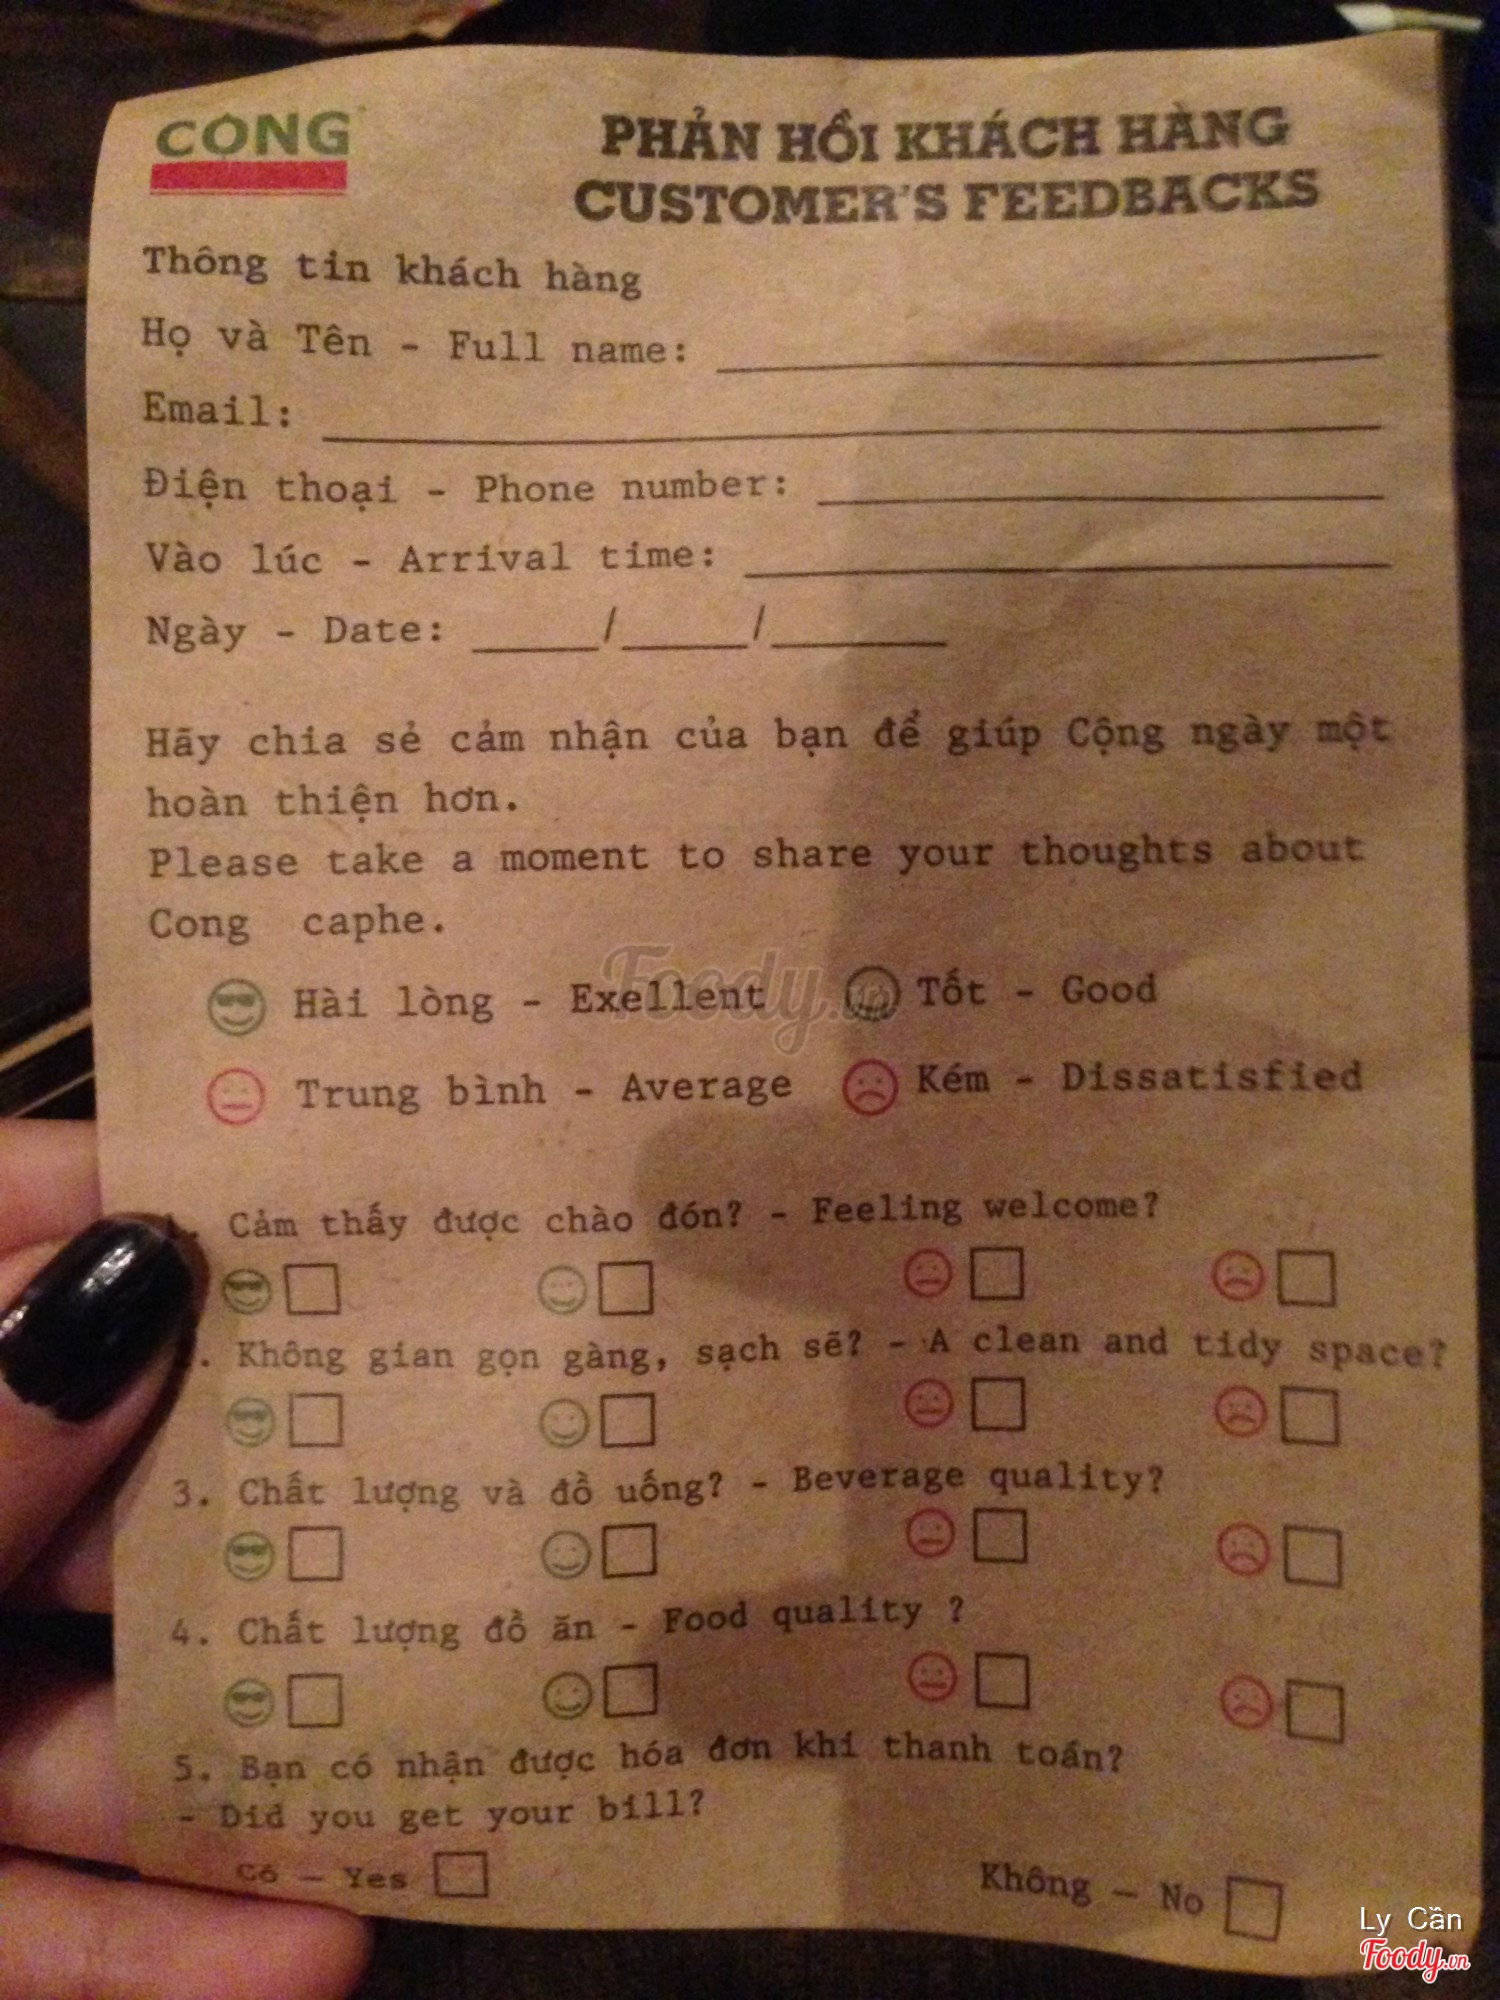 CỘNG
PHẢN HỒI KHÁCH HÀNG
CUSTOMER'S FEEDBACKS
Thông tin khách hàng
Họ và Tên - Full name:
Email:
Điện thoại - Phone number:
Vào lúc - Arrival time:
Ngày - Date: / /
Hãy chia sẻ cảm nhận của bạn để giúp Cộng ngày một
hoàn thiện hơn.
Please take a moment to share your thoughts about
Cong caphe.
Hài lòng - Exellent Tốt - Good
Foody.vn
Trung bình - Average Kém - Dissatisfied
Cảm thấy được chào đón? - Feeling welcome?
Không gian gọn gàng, sạch sẽ? - A clean and tidy space?
3. Chất lượng và đồ uống? - Beverage quality?
4. Chất lượng đồ ăn - Food quality ?
5. Bạn có nhận được hóa đơn khi thanh toán?
- Did you get your bill?
Có - Yes Không - No
Ly Cần
Foody.vn